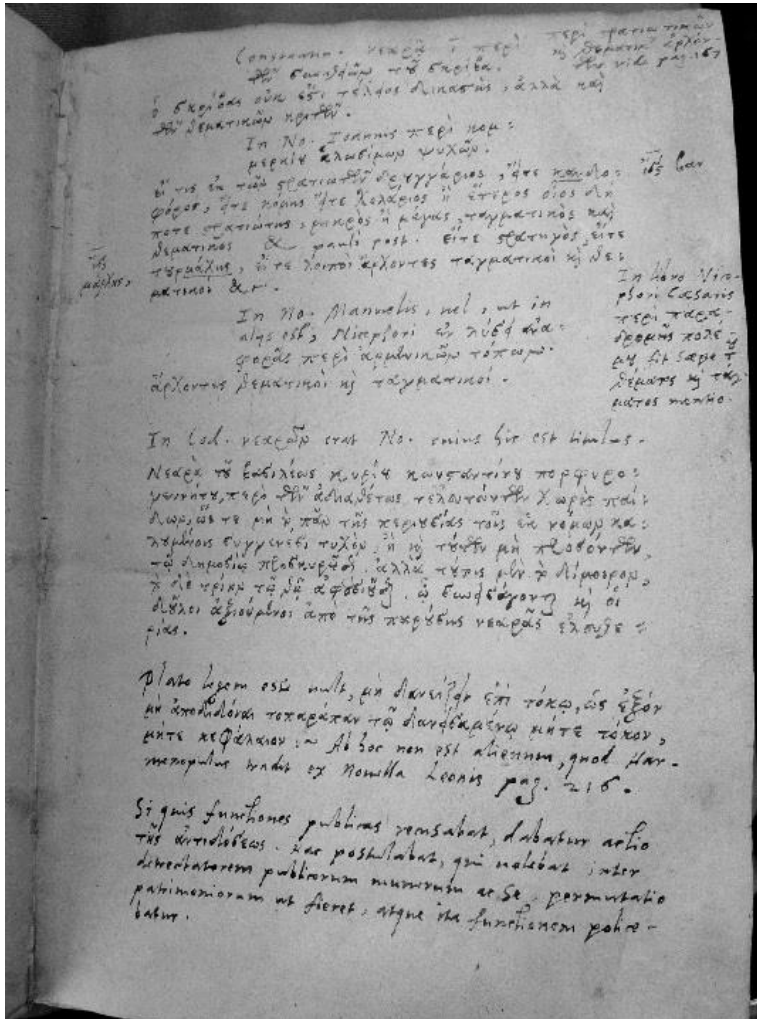 Constantin. νεαρᾷ ῑ περὶ
τῶν σακελλ τοῦ σκρίβα.
περὶ στρατιωτικῶν
καὶ θεματικ ἀρχόν-
των vide pag. 157
ὁ σκρίβας οὐκ ἔστι τέλειος δικαστὴς, ἀλλὰ καὶ
τῶν θεματικῶν κριτῶν.
In No. Ioannis περὶ κομ:
μερκίου ἁλωσίμων ψυχῶν.
εἴ τις ἐκ τῶν στρατιωτῶν δρυγγάριος, εἴτε κανδιδο:
φόρος, εἴτε κόμης εἴτε χολάριος ἢ ἕτερος οἷος δή
ποτε στρατιώτης, μικρὸς ἢ μέγας, ταγματικὸς καὶ
θεματικὸς & paulò post. εἴτε στρατηγὸς, εἴτε
τυρμάχης, εἴτε λοιποὶ ἄρχοντες ταγματικοὶ καὶ θε:
ματικοὶ &c.
In No. Manuelis, vel, ut in
alijs est, Nicephori ἐν λύσει ἀνα:
φορᾶς περὶ ἀρμενικῶν τόπων.
ἄρχοντες θεματικοὶ καὶ ταγματικοί.
In libro Nice-
phori Caesaris
περὶ παρα-
δρομῆς πολέ-
μου fit saepe τ
θέματος καὶ τάγ-
ματος mentio.
In Cod. νεαρῶν erat No. cuius hic est titulus.
Νεαρὰ τοῦ βασιλέως κυρίου κωνσταντίνου πορφυρο:
γεννήτου, περὶ τῶν ἀδιαθέτως τελευτώντων χωρὶς παί:
δων, ὥστε μὴ πᾶν τῆς περιουσίας τοῖς ἐκ νόμων κα:
λουμένοις συγγενέσι τυχὸν, ἢ καὶ τούτων μὴ προσόντων,
τῷ δημοσίῳ προσκυροῦσθαι. ἀλλὰ τούτοις μὲν τὸ δίμοιρον,
τὸ δὲ τρίτον τῷ θεῷ ἀφοσιοῦσθαι. ᾧ συνεισάγονται καὶ οἱ
δοῦλοι ἀξιούμενοι ἀπὸ τῆς παρούσης νεαρᾶς ἐλευθε:
ρίας.
Plato legem esse vult, μὴ δανείζειν ἐπὶ τόκῳ, ὡς ἐξὸν
μὴ ἀποδιδόναι τοπαράπαν τῷ δανεισαμένῳ μήτε τόκον,
μήτε κεφάλαιον :~ Ab hoc non est alienum, quod Har-
menopulus tradit ex Novella Leonis pag. 216.
Si quis functiones publicas recusabat, dabatur actio
τῆς ἀντιδόσεως. Hac postulabat, qui volebat inter
detrectatorem publicorum munerum ac se, permutatio
patrimoniorum ut fieret, atque ita functionem police-
batur.